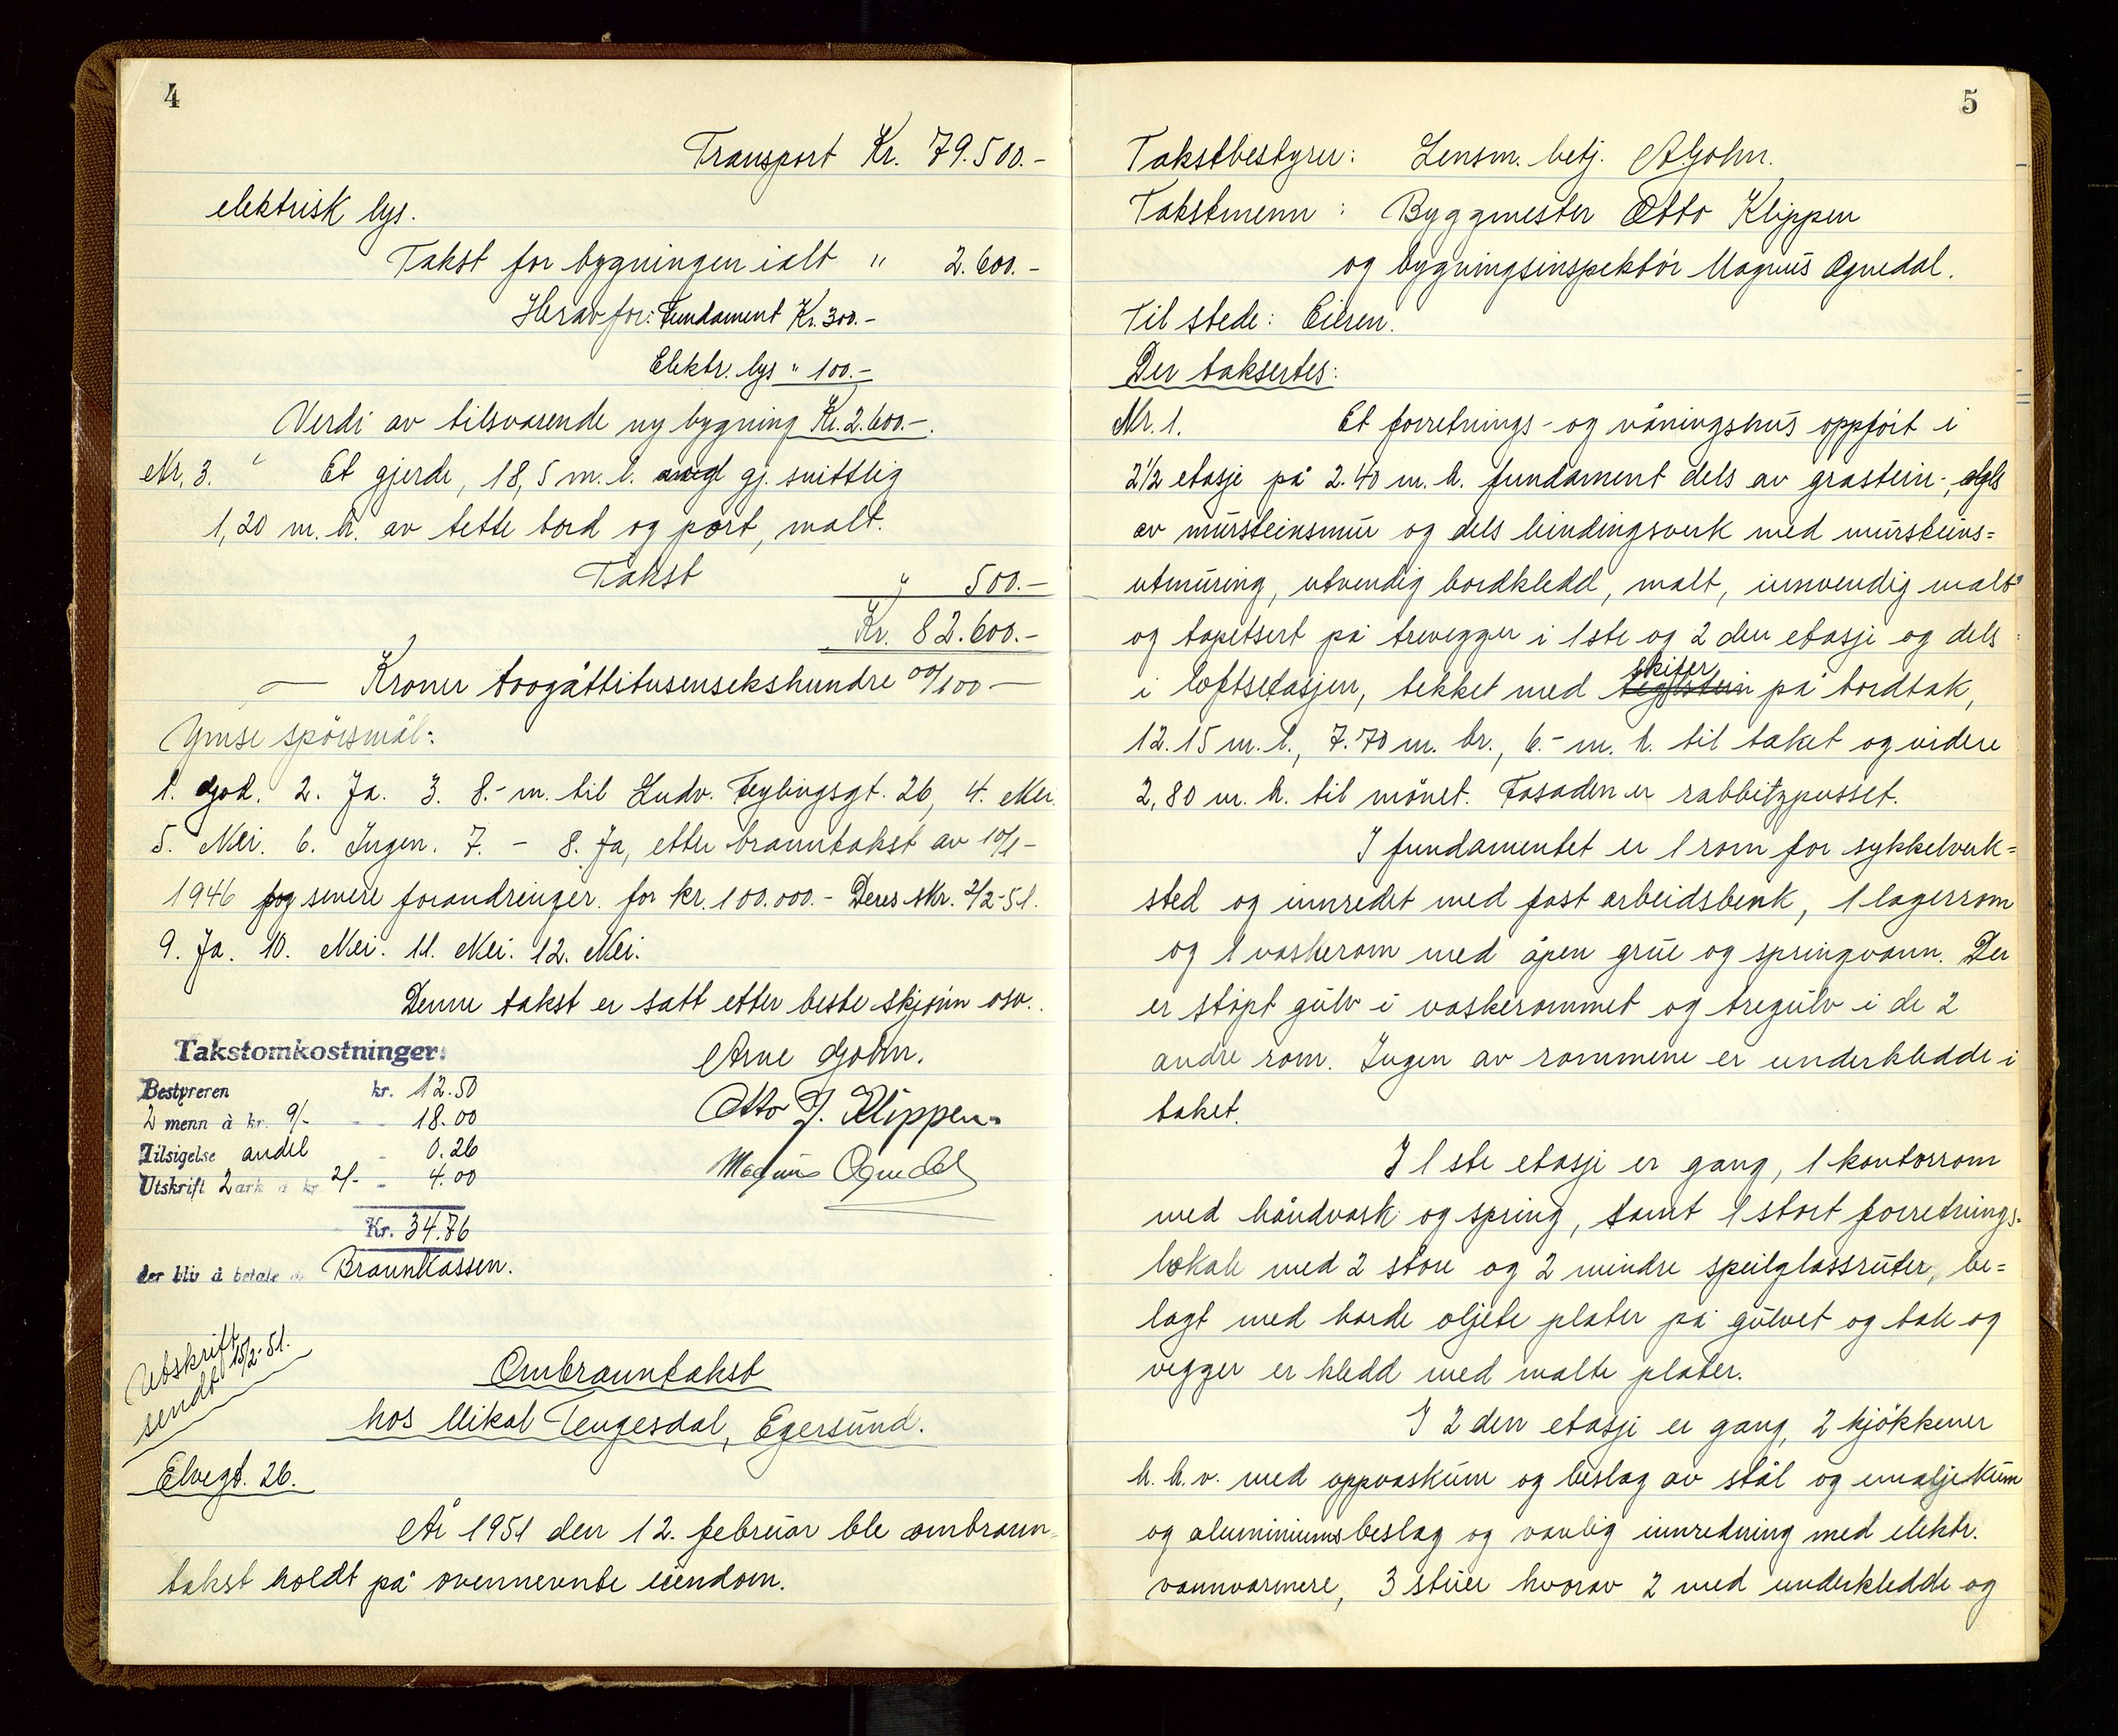 4
Transport Kr. 79.500.-
elektrisk lys.
Takst for bygningen ialt " 2.600.-
Herav for: Fundament Kr. 300.-
Elektr. lys " 100.-
Verdi av tilsvarende ny bygning Kr. 2.600.-.
Nr. 3. Et gjerde, 18,5 m. l. gj. snittlig
1,20 m. h. av tette bord og port, malt.
Takst " 500.-
Kr. 82.600.-
— Kroner toogåttitusensekshundre 00/100 —
Ymse spörsmål:
1. God. 2. Ja. 3. 8.- m. til Ludv. Feylingsgt. 26, 4. Nei.
5. Nei. 6. Ingen. 7. - 8. Ja, etter branntakst av 10/1-
1946 og senere forandringer for kr. 100.000.- Deres skr. 2/2-51.
9. Ja. 10. Nei. 11. Nei. 12. Nei.
Denne takst er satt etter beste skjönn osv..
Takstomkostninger:
Bestyreren kr. 12.50
2 menn à kr. 9/- - - 18.00
Tilsigelse andel - 0.26
Utskrift 2 ark à kr 2/- - 4.00
Kr. 34.76
der bliv å betale av Brannkassen.
Arne Gohn.
Otto J. Klippen.
Magnus Ognedal
Utskrift
sendt 15/2-51.
Ombranntakst
hos Mikal Tengesdal, Egersund.
Elvegt. 26.
År 1951 den 12. februar ble ombrann-
takst holdt på ovennevnte eiendom.
5
Takstbestyrer: Lensm. betj. A Gohn.
Takstmenn: Byggmester Otto Klippen
og bygningsinspektör Magnus Ognedal.
Til stede: Eieren.
Der taksertes:
Nr. 1. Et forretnings- og våningshus oppfört i
2 1/2 etasje på 2.40 m. h. fundament dels av grastein-, dels
av mursteinsmur og dels bindingsverk med mursteins=
utmuring, utvendig bordkledd, malt, innvendig malt
og tapetsert på trevegger i 1ste og 2 den etasje og dels
i loftsetasjen, tekket med teglstein skifer på bordtak,
12.15 m. l., 7.70 m. br., 6.- m. h. til taket og videre
2,80 m. h. til mönet. Fasaden er rabbitzpusset.
I fundamentet er 1 rom for sykkelverk=
sted og innredet med fast arbeidsbenk, 1 lagerrom
og 1 vaskerom med åpen grue og springvann. Der
er stöpt gulv i vaskerommet og tregulv i de 2
andre rom. Ingen av rommene er underkledde i
taket.
I 1 ste etasje er gang, 1 kontorrom
med håndvask og spring, samt 1 stort forretnings-
lokale med 2 store og 2 mindre speilglassruter, be=
lagt med harde oljete plater på gulvet og tak og
vegger er kledd med malte plater.
I 2 den etasje er gang, 2 kjökkener
h. h. v. med oppvaskum og beslag av stål og emaljekum
og aluminiumsbeslag og vanlig innredning med elektr.
vannvarmere, 3 stuer hvorav 2 med underkledde og